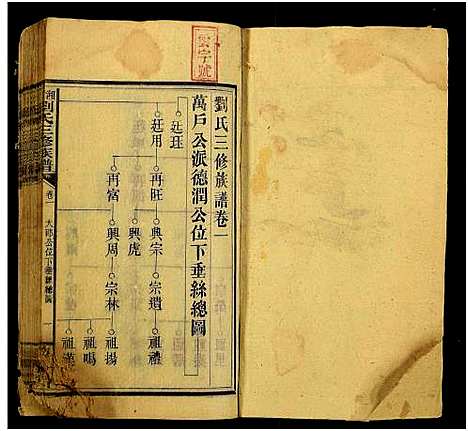 雲字號
劉氏三修族譜卷一
萬戶公派德潤公位下垂絲總圖
廷珏
廷用
再旺
興宗
宗遺
祖禮
興虎
再富
興周
宗林
祖揚
祖鳴
祖漢
劉氏三修族譜
卷一
公位下垂絲總圖
一